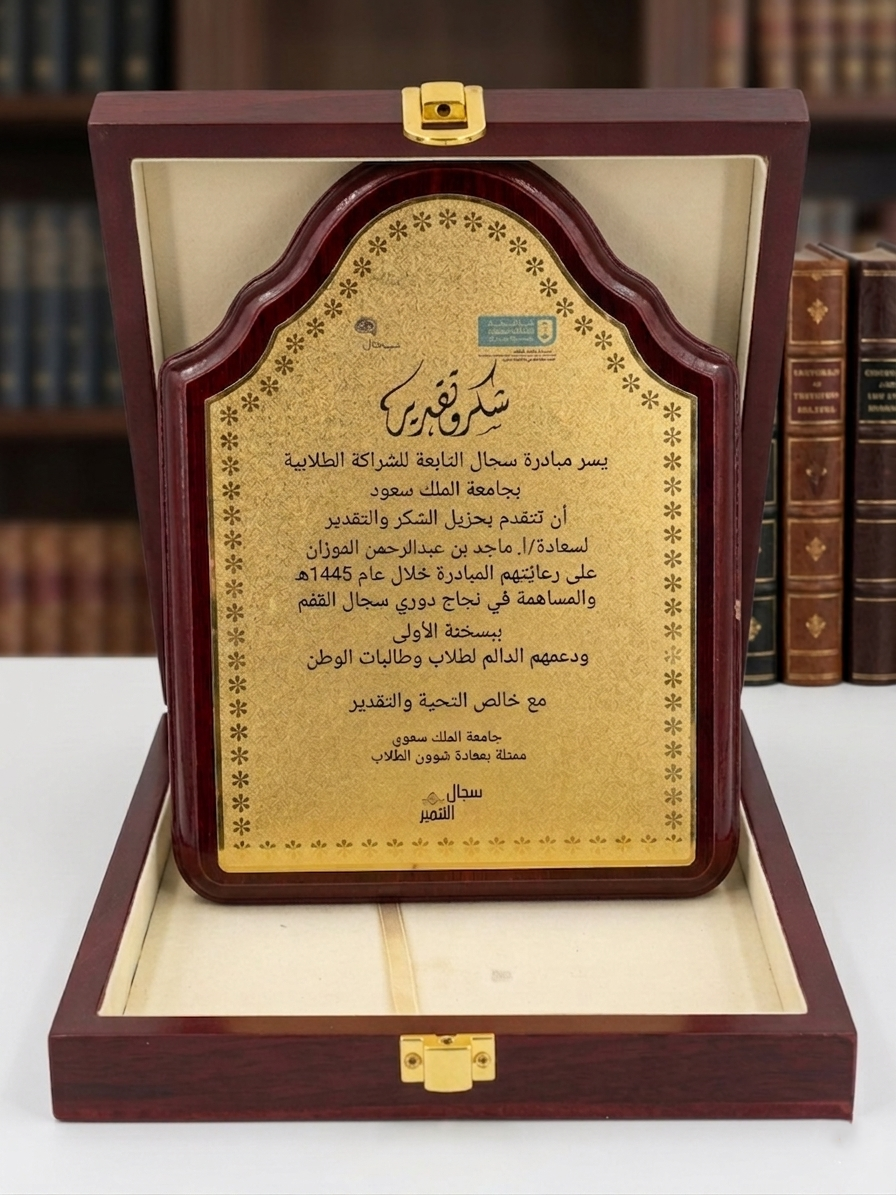 سجال
شكر وتقدير
يسر مبادرة سجال التابعة للشراكة الطلابية
بجامعة الملك سعود
أن تتقدم بجزيل الشكر والتقدير
لسعادة/أ. ماجد بن عبدالرحمن الموزان
على رعايتهم المبادرة خلال عام 1445هـ
والمساهمة في نجاح دوري سجال القفم
ببسختة الأولى
ودعمهم الدالم لطلاب وطالبات الوطن
مع خالص التحية والتقدير
جامعة الملك سعوى
ممتلة بعمادة شوون الطلاب
سجال